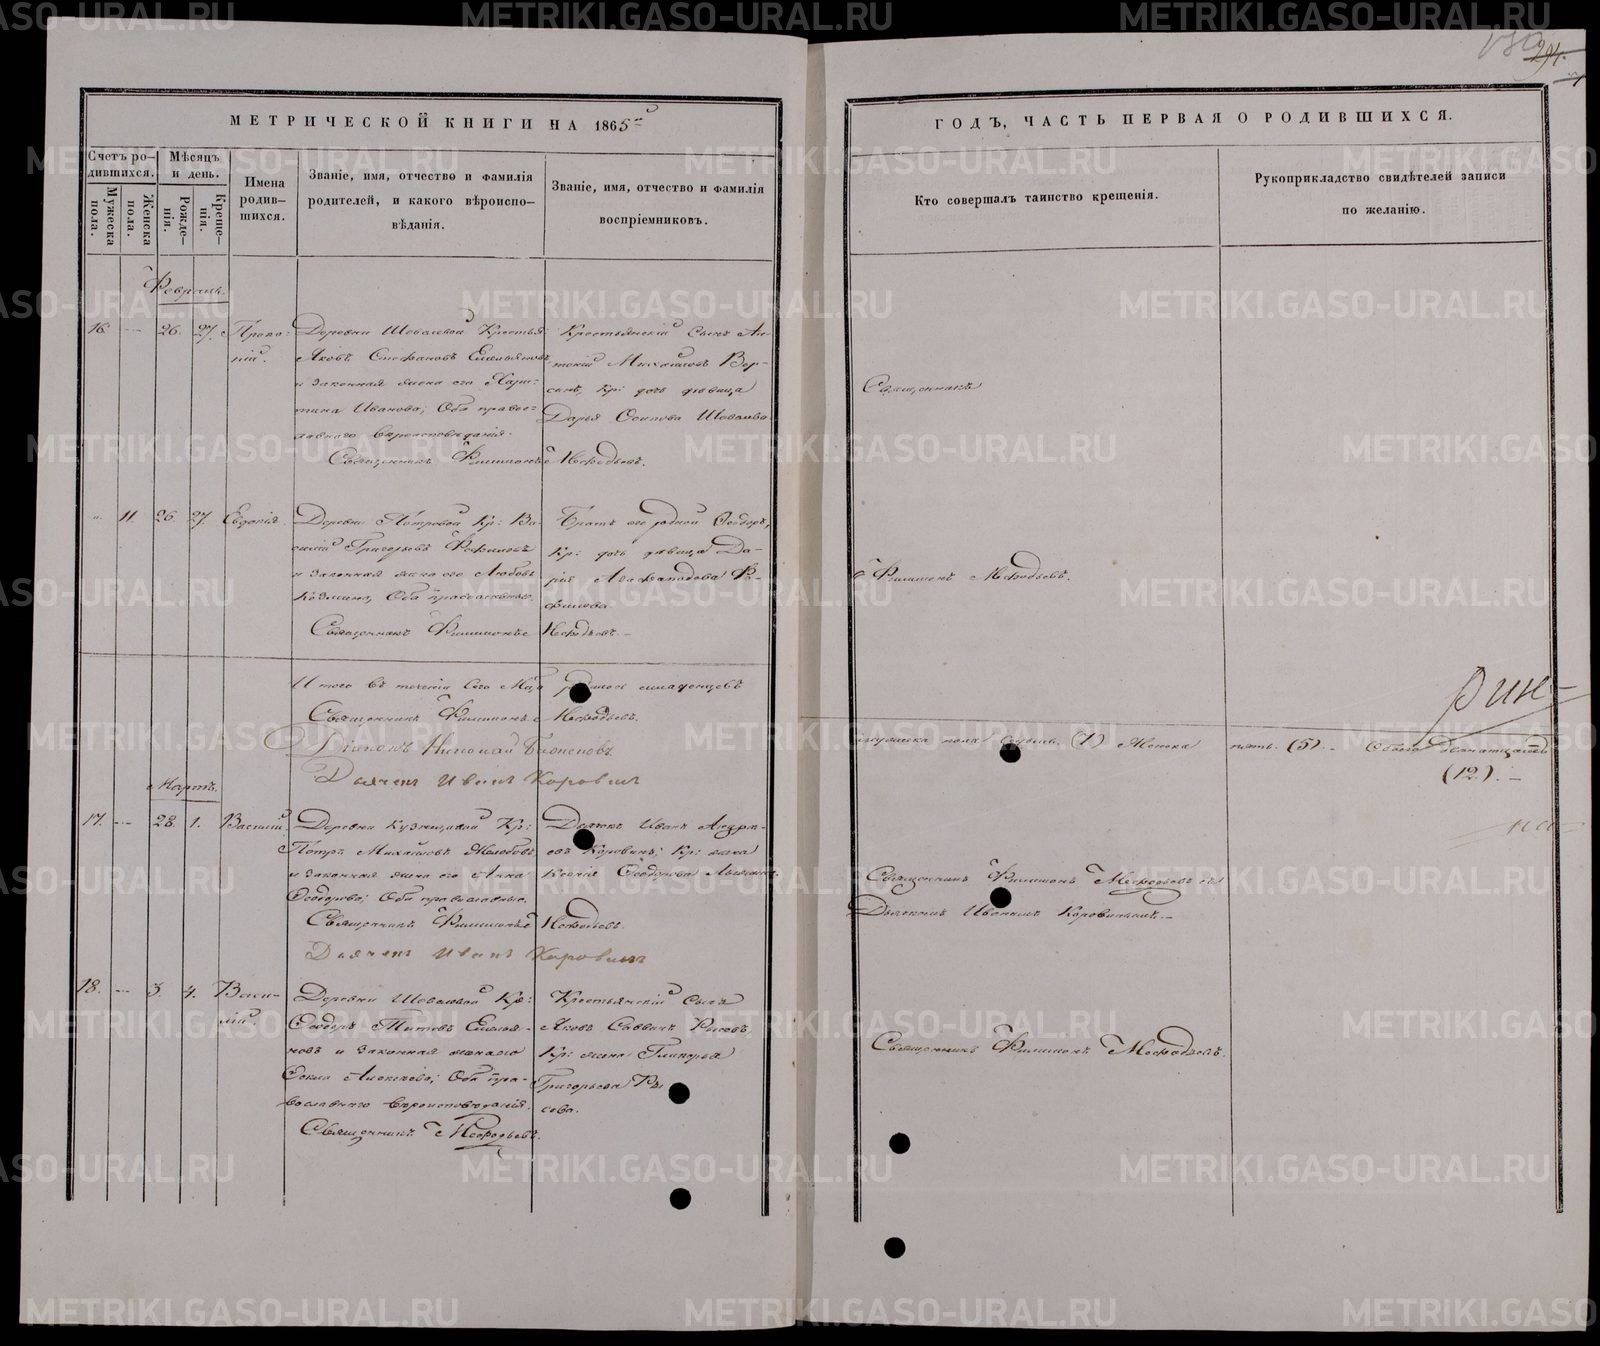 294.
МЕТРИЧЕСКОЙ КНИГИ НА 1865
ГОДЪ, ЧАСТЬ ПЕРВАЯ О РОДИВШИХСЯ.
Счетъ ро-
дившихся.
Мужеска
пола.
Женска
пола.
Мѣсяцъ
и день.
Рожде-
нія.
Креще-
нія.
Имена
родив-
шихся.
Званіе, имя, отчество и фамилія
родителей, и какого вѣроиспо-
вѣданія.
Званіе, имя, отчество и фамилія
воспріемниковъ.
Кто совершалъ таинство крещенія.
Рукоприкладство свидѣтелей записи
по желанію.
Февраль.
16. 26. 27. Проко-
пій.
Деревни Шоваловой Крестья
Яковъ Стефановъ Емельяновъ
и законная жена его Хари-
тина Иванова; Оба право-
славнаго вѣроисповѣданія.
Священникъ Филимонъ Мефодьевъ.
Крестьянскій сынъ
Михайловъ
Кр: дочь дѣвица
Дарья Осипова Шовалова
Священникъ
11. 26. 27. Евдокія.
Деревни Петровой Кр: Ва-
силій Григорьевъ
и законная жена его Любовь
Козмина, Оба православные.
Священникъ Филимонъ Мефодьевъ.
Братъ его родной Ѳеодоръ,
Кр: дочь дѣвица Да-
рія
Филимонъ Мефодьевъ.
Итого въ теченіи сего родилось младенцевъ
мужеска пола (7) Женска пять. (5). Обоего двенатцать
(12).
Священникъ Филимонъ Мефодьевъ.
Діаконъ Николай
Дьячекъ Иванъ Коровинъ
Мартъ.
17. 28. 1. Василій.
Деревни Кузнецовой Кр:
Петръ Михайловъ Жолобовъ
и законная жена его Анна
Ѳеодорова; Оба православные.
Священникъ Филимонъ Мефодьевъ.
Дьячекъ Иванъ Коровинъ
Дьячекъ Иванъ Андре-
евъ Коровинъ; Кр: жена
Ксенія Ѳеодорова
Священникъ Филимонъ Мефодьевъ съ
Дьячкомъ Иваномъ Коровинымъ.
18. 3. 4. Васи-
лій.
Деревни Шоваловой Кр:
Ѳеодоръ Титовъ Емелья-
новъ и законная жена его
Алексѣева; Оба пра-
вославнаго вѣроисповѣданія.
Священникъ Мефодьевъ.
Крестьянскій сынъ
Яковъ Саввинъ
Кр: жена Гликерья
Григорьева
Священникъ Филимонъ Мефодьевъ.
METRIKI.GASO-URAL.RU